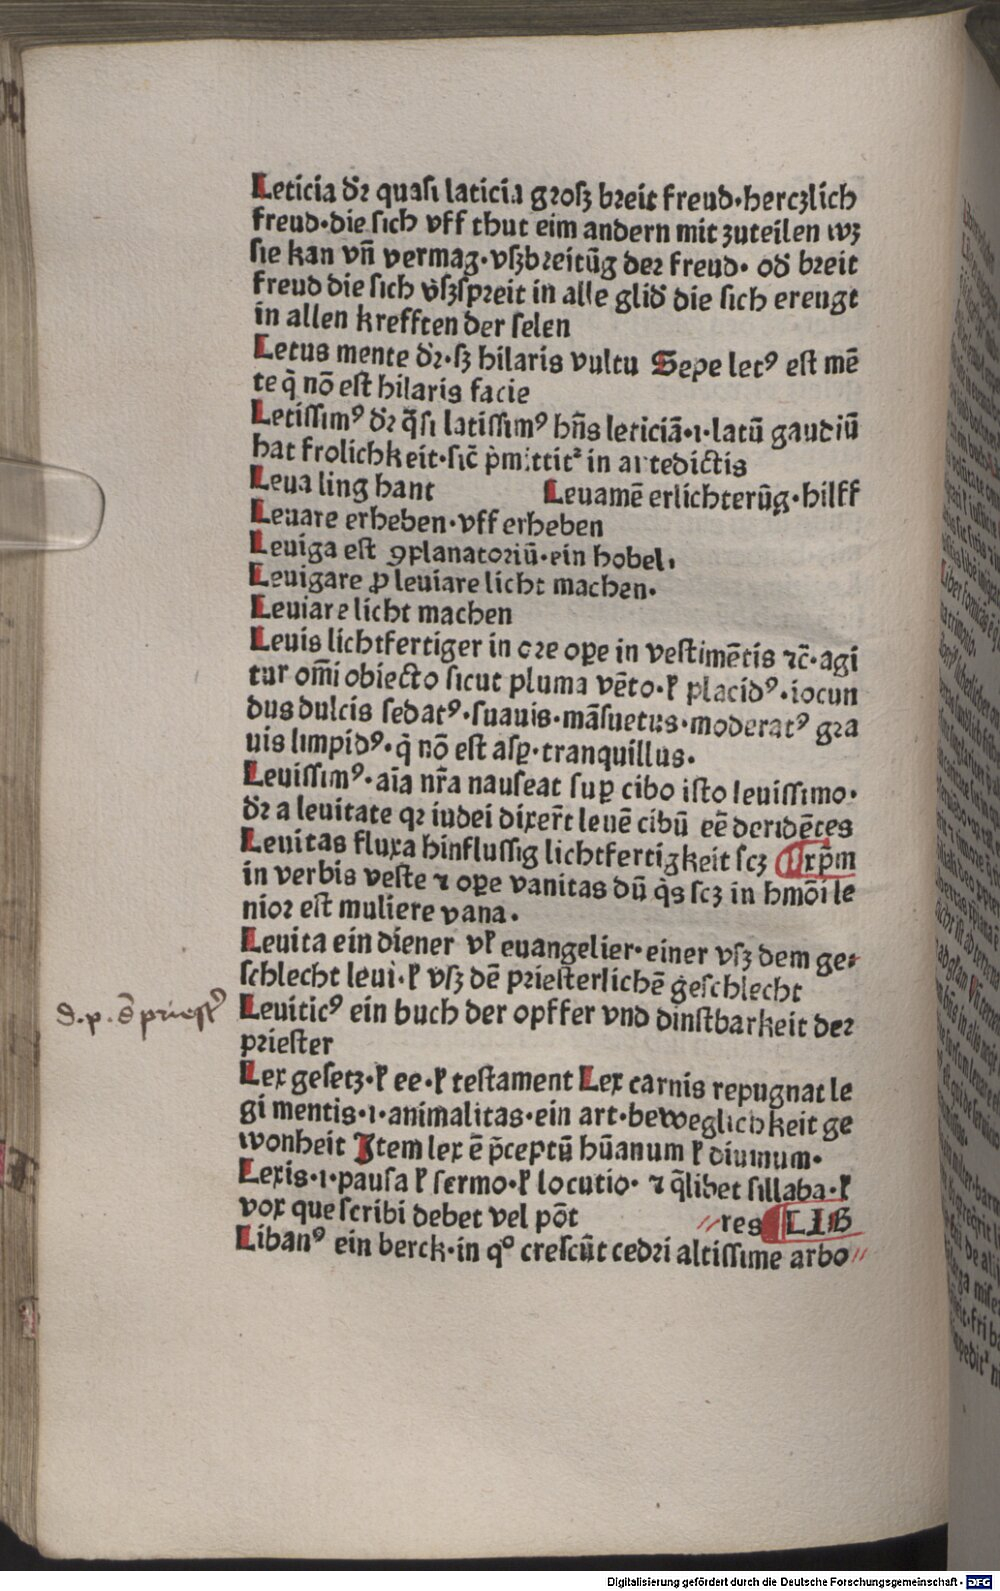 Leticia dr̄ quasi laticia grosz breit freud·herczlich
freud·die sich vff thut eim andern mit zuteilen wz
sie kan vn̄ vermag·vszbreitūg der freud· od̄ breit
freud die sich vszspreit in alle glid̄ die sich erengt
in allen krefften der selen
Letus mente dr̄·sz hilaris vultu Sepe letꝰ est mē
te q̄ nō est hilaris facie
Letissimꝰ dr̄ q̄si latissimꝰ hn̄s leticiā·i·latū gaudiū
hat frolichkeit·sic̄ p̄mittit᷑ in artedictis
Leua ling hant Leuamē erlichterūg·hilff
Leuare erheben·vff erheben
Leuiga est ꝯplanatoriū·ein hobel.
Leuigare ꝓ leuiare licht machen·
Leuiare licht machen
Leuis lichtfertiger in ore oꝑe in vestimētis ⁊c̄·agi
tur om̄i obiecto sicut pluma vēto·ꝉ placidꝰ·iocun
dus dulcis sedatꝰ·suauis·māsuetus·moderatꝰ gra
uis limpidꝰ·q̄ nō est asꝑ·tranquillus·
Leuissimꝰ·aīa nr̄a nauseat suꝑ cibo isto leuissimo·
dr̄ a leuitate qꝛ iudei dixer̄t leuē cibū eē deridētes
Leuitas fluxa hinflussig lichtfertigkeit scz xp̄m
in verbis veste ⁊ oꝑe vanitas dū q̄s scz in hmōi le
nior est muliere vana·
Leuita ein diener vꝉ euangelier·einer vsz dem ge⸗
schlecht leui·ꝉ vsz dē priesterlichē geschlecht
d.p. d̄ priestꝰ
Leuiticꝰ ein buch der opffer vnd dinstbarkeit der
priester
Lex gesetz·ꝉ ee·ꝉ testament Lex carnis repugnat le
gi mentis·i·animalitas·ein art·beweglichkeit ge
wonheit Item lex ē p̄ceptū hūanum ꝉ diuinum·
Lexis·i·pausa ꝉ sermo·ꝉ locutio· ⁊ q̄libet sillaba·ꝉ
vox que scribi debet vel pōt //res LIB
Libanꝰ ein berck·in qͦ crescūt cedri altissime arbo//
Digitalisierung gefördert durch die Deutsche Forschungsgemeinschaft - DFG